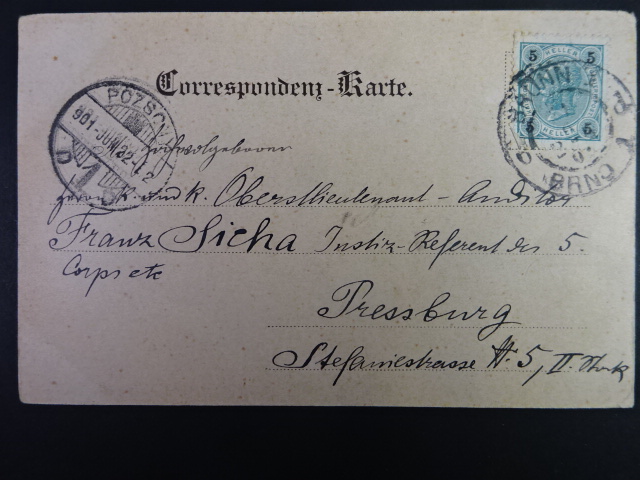 Correspondenz-Karte.
5 HELLER 5
5 HELLER 5
BRÜNN
BRNO
POZSONY
901 JUN
Hochwolgeboren
Herrn k. und k. Oberstlieutenant-Auditor
Franz Sicha Justiz-Referent des 5.
Corps etc
Pressburg
Stefaniestrasse N. 5, II. Stock